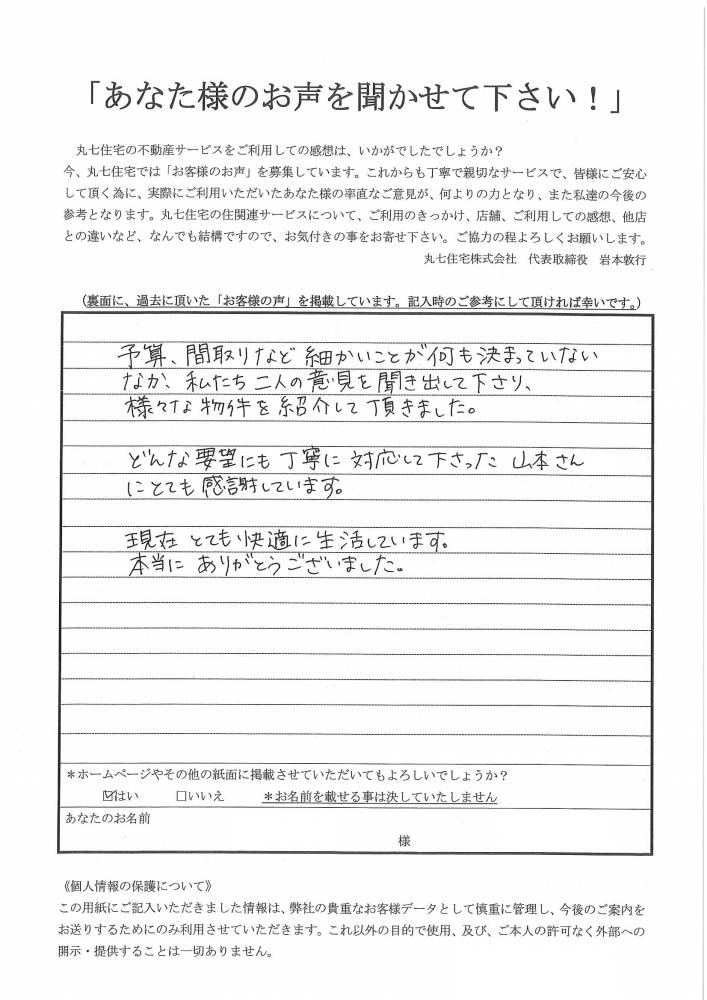 「あなた様のお声を聞かせて下さい！」
丸七住宅の不動産サービスをご利用しての感想は、いかがでしたでしょうか？
今、丸七住宅では「お客様のお声」を募集しています。これからも丁寧で親切なサービスで、皆様にご安心
して頂く為に、実際にご利用いただいたあなた様の率直なご意見が、何よりの力となり、また私達の今後の
参考となります。丸七住宅の住関連サービスについて、ご利用のきっかけ、店舗、ご利用しての感想、他店
との違いなど、なんでも結構ですので、お気付きの事をお寄せ下さい。ご協力の程よろしくお願いします。
丸七住宅株式会社　代表取締役　岩本敦行
（裏面に、過去に頂いた「お客様の声」を掲載しています。記入時のご参考にして頂ければ幸いです。）
予算、間取りなど 細かいことが何も決まっていない
なか、私たち 二人の意見を聞き出して下さり、
様々な物件を紹介して頂きました。
どんな要望にも丁寧に対応して下さった 山本さん
にとても感謝しています。
現在 とても快適に生活しています。
本当に ありがとうございました。
＊ホームページやその他の紙面に掲載させていただいてもよろしいでしょうか？
☑はい　□いいえ　＊お名前を載せる事は決していたしません
あなたのお名前
様
《個人情報の保護について》
この用紙にご記入いただきました情報は、弊社の貴重なお客様データとして慎重に管理し、今後のご案内を
お送りするためにのみ利用させていただきます。これ以外の目的で使用、及び、ご本人の許可なく外部への
開示・提供することは一切ありません。